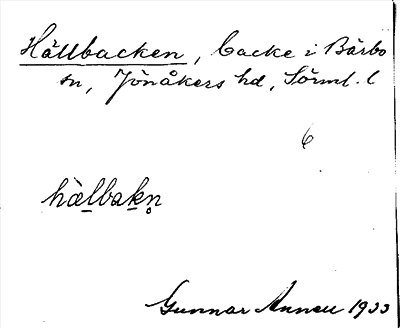 Hällbacken, backe i Bärbo
sn, Jönåkers hd, Sörml. l
6
hälbakn̥
Gunnar 1933